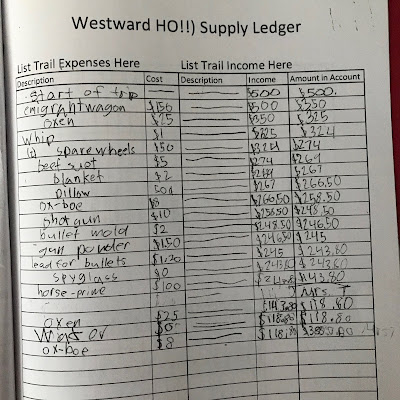 Westward HO!!) Supply Ledger
List Trail Expenses Here List Trail Income Here
Description Cost Description Income Amount in Account
start of trip $500 $500.
emigrant wagon $150 $500 $350
oxen $25 $350 $325
whip $1 $325 $324
spare wheels $50 $324 $274
beef suet $5 $274 $269
blanket $2 $269 $267
pillow 50¢ $267 $266.50
ox-boe $8 $266.50 $258.50
shotgun $10 $258.50 $248.50
bullet mold $2 $248.50 $246.50
gun powder $1.50 $246.50 $245
lead for bullets $1.20 $245 $243.80
spyglass $0 $243.80
horse-prime $100 $143.80
$143.80 $118.80
oxen $25 $118.80 $118.80
$0 $118.80
ox-boe $8